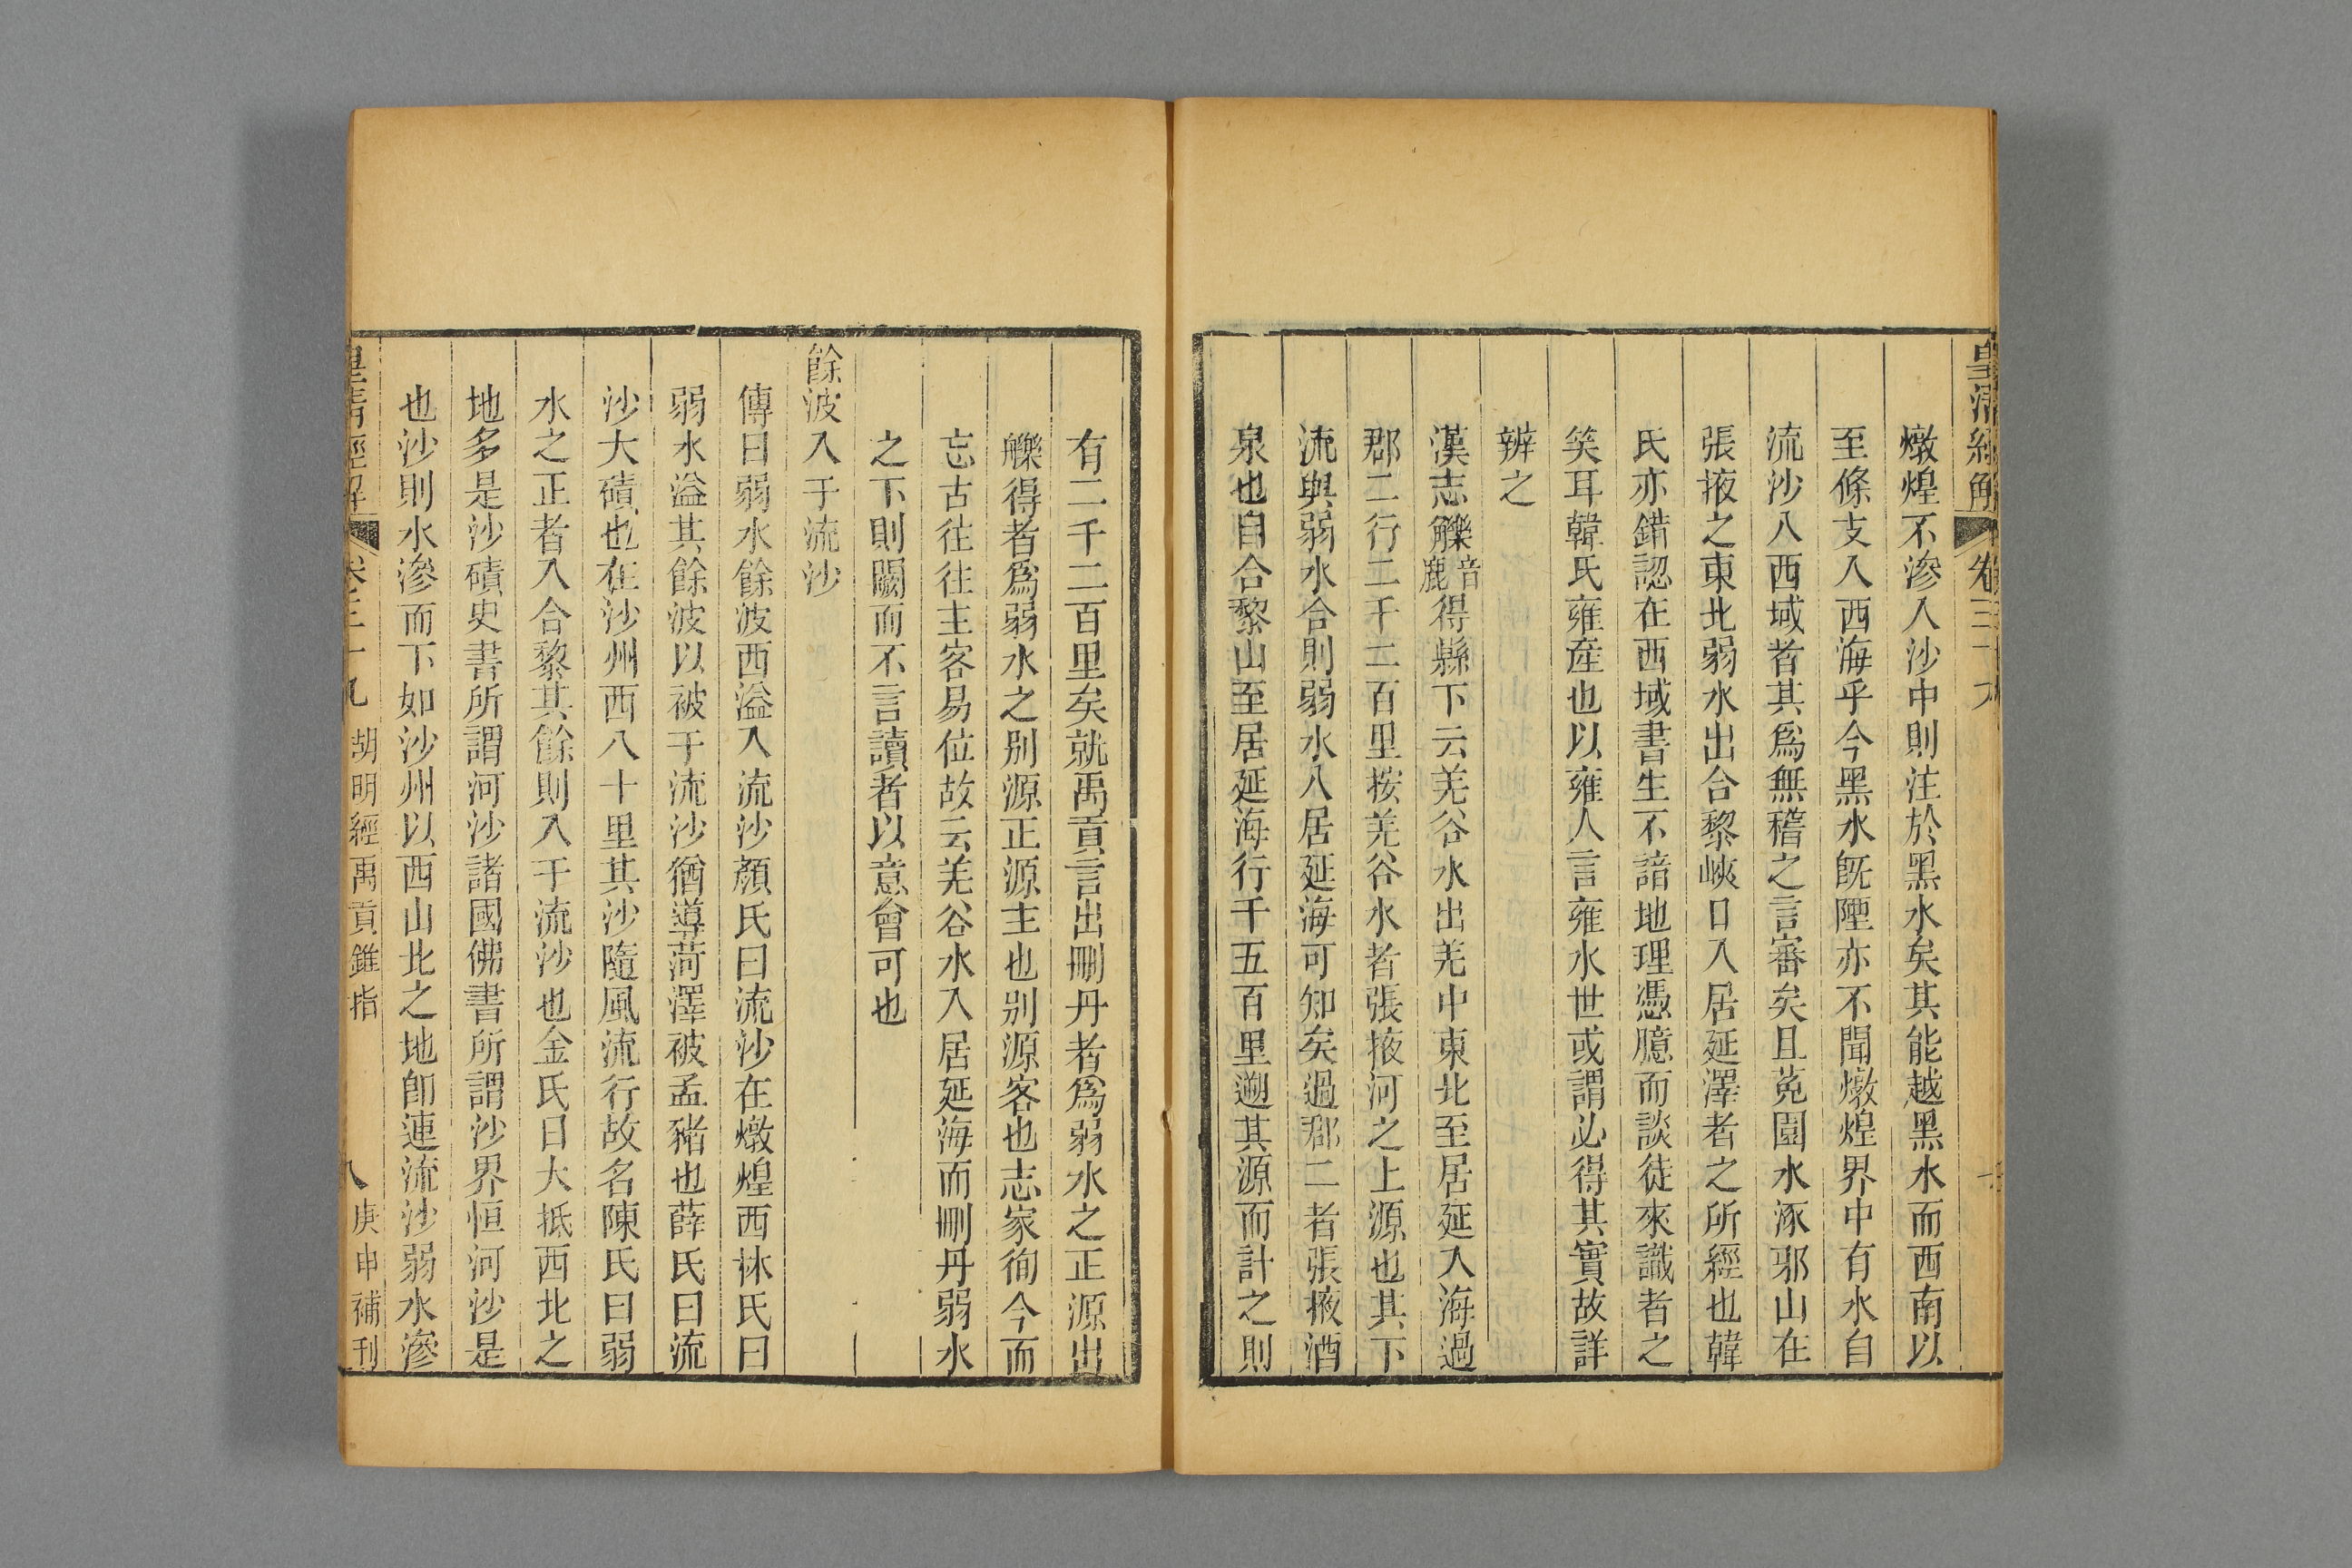 皇清經解 卷三十九
燉煌不滲入沙中則注於黑水矣其能越黑水而西南以
至條支入西海乎今黑水旣陻亦不聞燉煌界中有水自
流沙入西域者其爲無稽之言審矣且菟園水涿邪山在
張掖之東北弱水出合黎峽口入居延澤者之所經也韓
氏亦錯認在西域書生不諳地理憑臆而談徒來識者之
笑耳韓氏雍産也以雍人言雍水世或謂必得其實故詳
辨之
漢志觻音鹿得縣下云羌谷水出羌中東北至居延入海過
郡二行二千二百里按羌谷水者張掖河之上源也其下
流與弱水合則弱水入居延海可知矣過郡二者張掖酒
泉也自合黎山至居延海行千五百里遡其源而計之則
有二千二百里矣就禹貢言出刪丹者爲弱水之正源出
觻得者爲弱水之别源正源主也别源客也志家徇今而
忘古往往主客易位故云羌谷水入居延海而刪丹弱水
之下則闕而不言讀者以意會可也
餘波入于流沙
傳曰弱水餘波西溢入流沙顏氏曰流沙在燉煌西林氏曰
弱水溢其餘波以被于流沙猶導菏澤被孟豬也薛氏曰流
沙大磧也在沙州西八十里其沙隨風流行故名陳氏曰弱
水之正者入合黎其餘則入于流沙也金氏曰大抵西北之
地多是沙磧史書所謂河沙諸國佛書所謂沙界恒河沙是
也沙則水滲而下如沙州以西山北之地卽連流沙弱水滲
皇清經解 卷三十九 胡明經禹貢錐指 八 庚申補刊